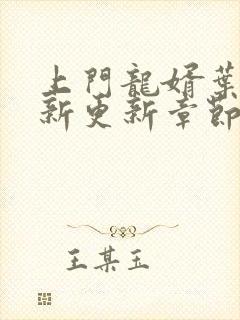 上門龍婿葉
新更新章節
王某玉